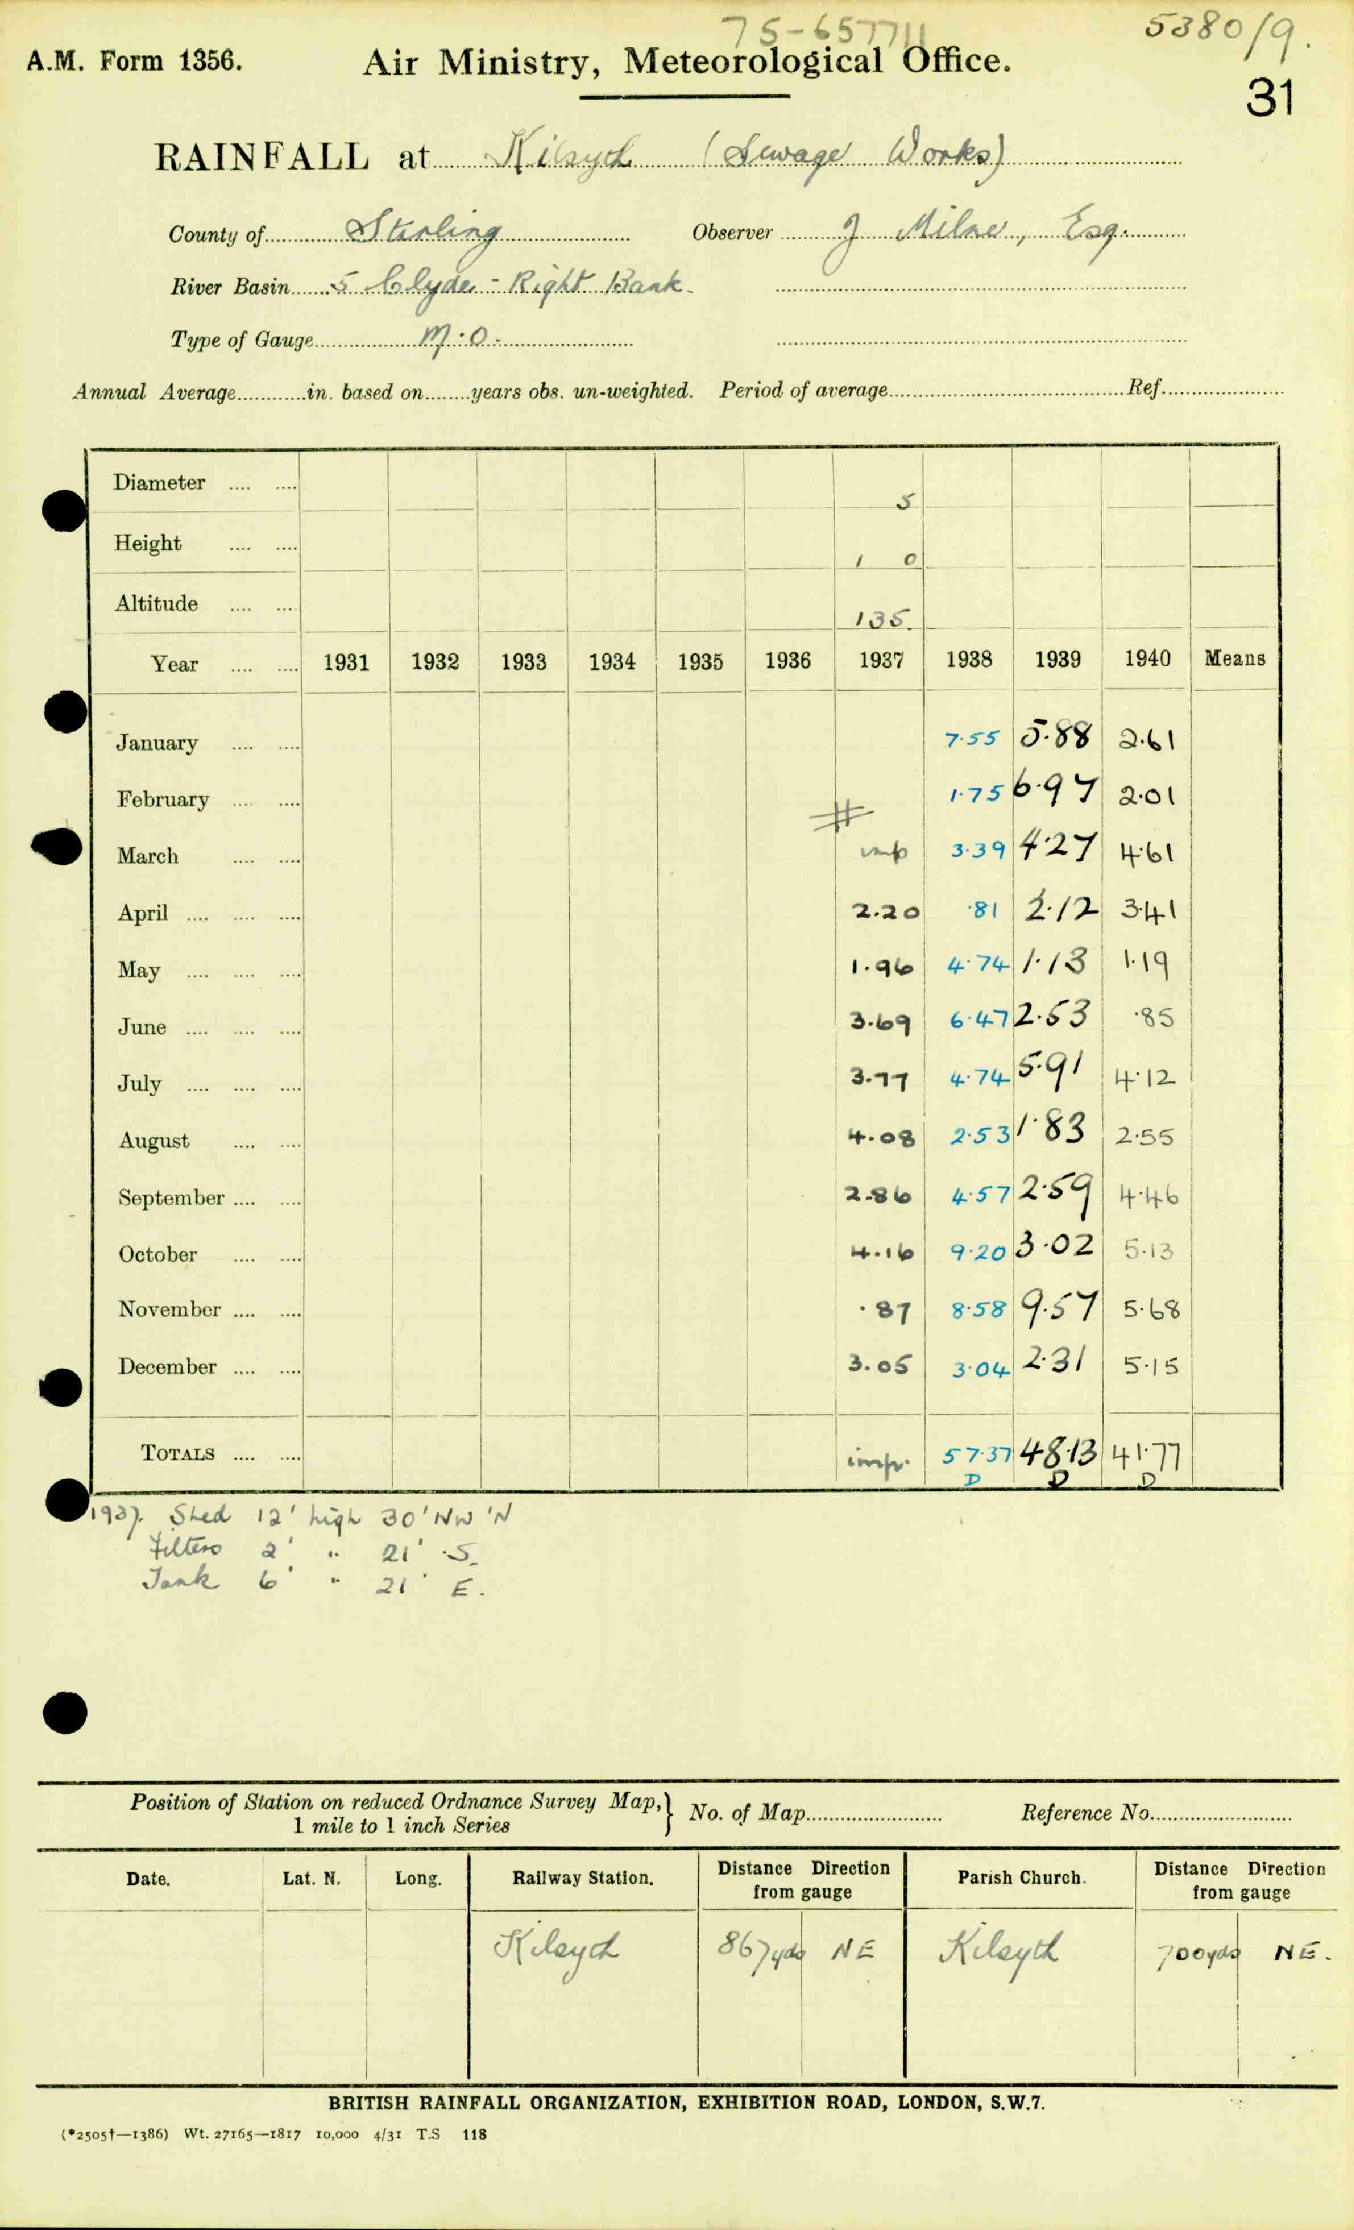 75-657711
5380/9.
A.M. Form 1356.
Air Ministry, Meteorological Office.
31
RAINFALL at Kilsyth (Sewage Works)
County of Stirling Observer J Milne, Esq.
River Basin 5 Clyde - Right Bank.
Type of Gauge M.O.
Annual Average............in. based on........years obs. un-weighted. Period of average........Ref.
Diameter .... .... 5
Height .... .... 1 0
Altitude .... .... 135.
Year .... .... 1931 1932 1933 1934 1935 1936 1937 1938 1939 1940 Means
January .... .... 7.55 5.88 2.61
February .... .... 1.75 6.97 2.01
March .... .... imp 3.39 4.27 4.61
April .... .... .... 2.20 .81 2.12 3.41
May .... .... .... 1.96 4.74 1.13 1.19
June .... .... .... 3.69 6.47 2.53 .85
July .... .... .... 3.77 4.74 5.91 4.12
August .... .... 4.08 2.53 1.83 2.55
September .... .... 2.86 4.57 2.59 4.46
October .... .... 4.16 9.20 3.02 5.13
November .... .... .87 8.58 9.57 5.68
December .... .... 3.05 3.04 2.31 5.15
TOTALS .... .... imp. 57.37 48.13 41.77
D D D
1937. Shed 12' high 30' NW 'N
Filters 2' " 21' S.
Tank 6' " 21' E.
Position of Station on reduced Ordnance Survey Map,} No. of Map........ Reference No.........
1 mile to 1 inch Series
Date. Lat. N. Long. Railway Station. Distance Direction from gauge Parish Church. Distance Direction from gauge
Kilsyth 867yds NE Kilsyth 700yds NE.
BRITISH RAINFALL ORGANIZATION, EXHIBITION ROAD, LONDON, S.W.7.
(*2505†—1386) Wt. 27165—1817 10,000 4/31 T.S 118